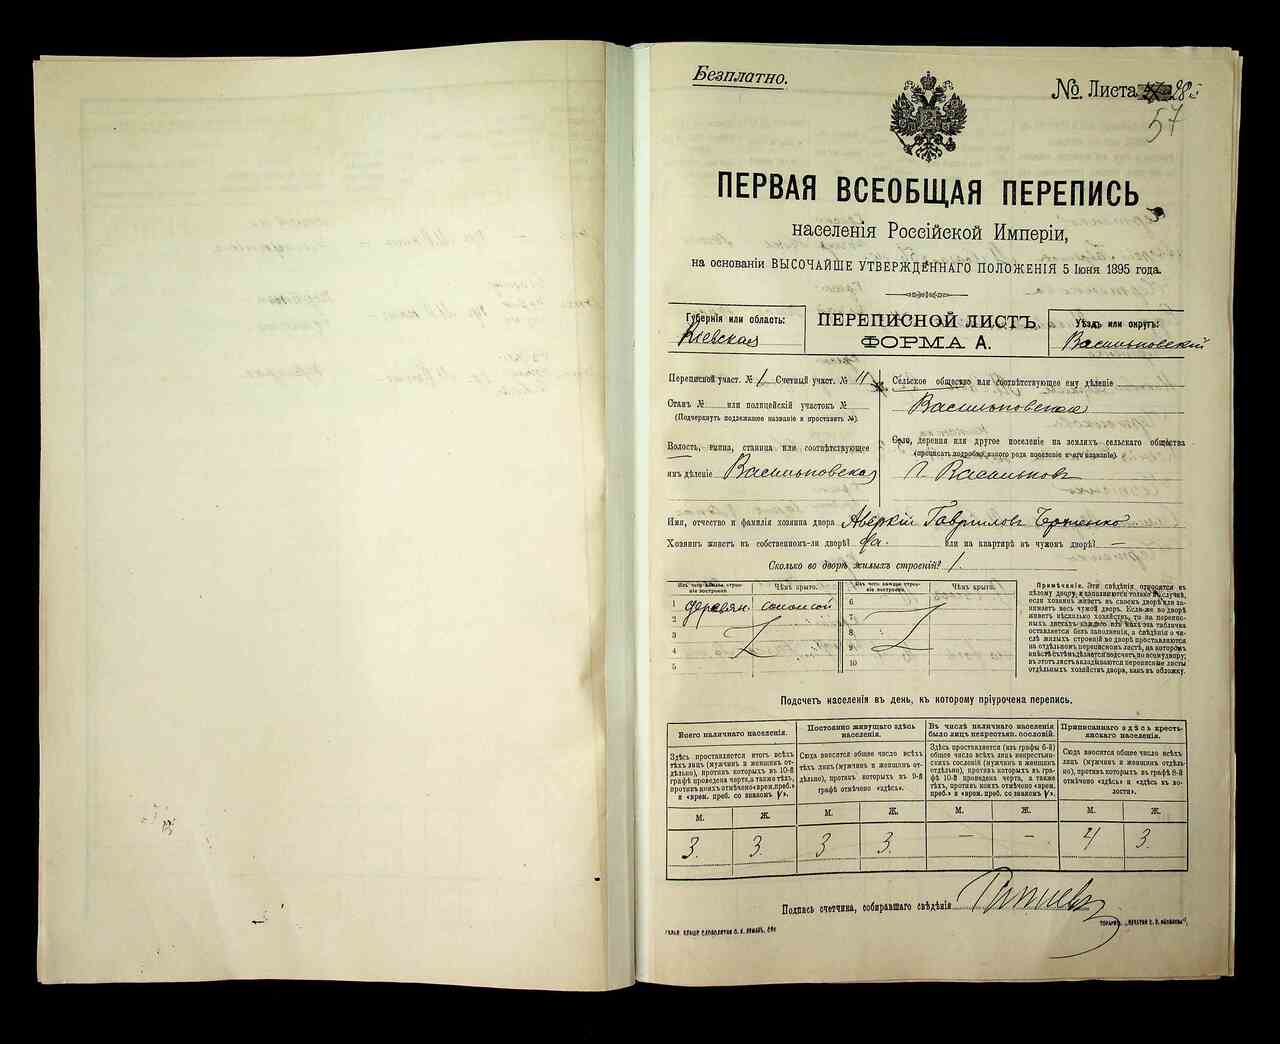 Безплатно.
№ Листа 28
57
ПЕРВАЯ ВСЕОБЩАЯ ПЕРЕПИСЬ
населенія Россійской Имперіи,
на основаніи ВЫСОЧАЙШЕ УТВЕРЖДЕННАГО ПОЛОЖЕНІЯ 5 Іюня 1895 года.
Губернія или область:
Кіевская
ПЕРЕПИСНОЙ ЛИСТЪ
ФОРМА А.
Уѣздъ или округъ:
Васильковскій
Переписной участ. № 1 Счетный участ. № 4
Станъ № или полицейскій участокъ №
(Подчеркнуть подлежащее названіе и проставить №).
Волость, гмина, станица или соотвѣтствующее
имъ дѣленіе Васильковская
Сельское общество или соотвѣтствующее ему дѣленіе
Васильковское
Село, деревня или другое поселеніе на земляхъ сельскаго общества
(прописать подробно, какого рода поселеніе и его названіе).
г. Васильковъ
Имя, отчество и фамилія хозяина двора Аверкій Гавриловъ
Хозяинъ живетъ въ собственномъ-ли дворѣ? да. или на квартирѣ въ чужомъ дворѣ? —
Сколько во дворѣ жилыхъ строеній? 1.
Изъ чего каждое строеніе построено. Чѣмъ крыто. Изъ чего каждое строеніе построено. Чѣмъ крыто.
1 деревян. соломой 6
2 7
3 8
4 9
5 10
Примѣчаніе. Эти свѣдѣнія относятся къ
цѣлому двору и заполняются только въ случаѣ,
если хозяинъ живетъ въ своемъ дворѣ или занимаетъ
весь чужой дворъ. Если-же во дворѣ
живетъ нѣсколько хозяйствъ, то на переписныхъ
листахъ каждаго изъ нихъ эта табличка
оставляется безъ заполненія, а свѣдѣнія о числѣ
жилыхъ строеній во дворѣ проставляются
на отдѣльномъ переписномъ листѣ, на которомъ
вмѣстѣ съ тѣмъ дѣлается подсчетъ по всему двору;
въ этотъ листъ вкладываются переписные листы
отдѣльныхъ хозяйствъ двора, какъ въ обложку.
Подсчетъ населенія въ день, къ которому пріурочена перепись.
Всего наличнаго населенія.
Здѣсь проставляется итогъ всѣхъ
тѣхъ лицъ (мужчинъ и женщинъ отдѣльно),
противъ которыхъ въ 10-й
графѣ проведена черта, а также тѣхъ,
противъ коихъ отмѣчено «врем. преб.»
и «врем. преб. со знакомъ V».
Постоянно живущаго здѣсь населенія.
Сюда вносится общее число всѣхъ
тѣхъ лицъ (мужчинъ и женщинъ отдѣльно),
противъ которыхъ въ 9-й
графѣ отмѣчено «здѣсь».
Въ числѣ наличнаго населенія было лицъ некрестьян. сословій.
Здѣсь проставляется (изъ графы 6-й)
общее число всѣхъ лицъ некрестьянскихъ
сословій (мужчинъ и женщинъ
отдѣльно), противъ которыхъ въ графѣ
10-й проведена черта, а также
тѣхъ, противъ коихъ отмѣчено «врем.
преб.» и «врем. преб. со знакомъ V».
Приписаннаго здѣсь крестьянскаго населенія.
Сюда вносится общее число всѣхъ
тѣхъ лицъ (мужчинъ и женщинъ отдѣльно),
противъ которыхъ въ графѣ 8-й
отмѣчено «здѣсь» и «здѣсь въ волости».
М. Ж. М. Ж. М. Ж. М. Ж.
3. 3. 3 3. — — 4 3.
Подпись счетчика, собиравшаго свѣдѣнія